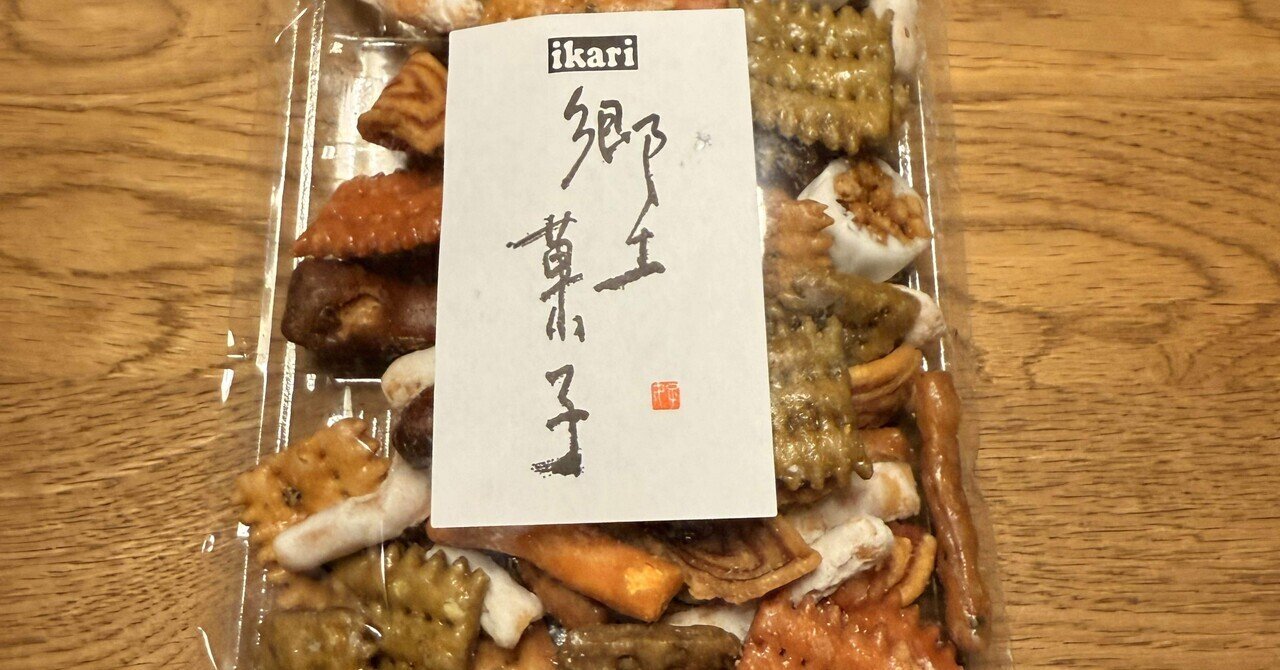 ikari
郷土
菓子